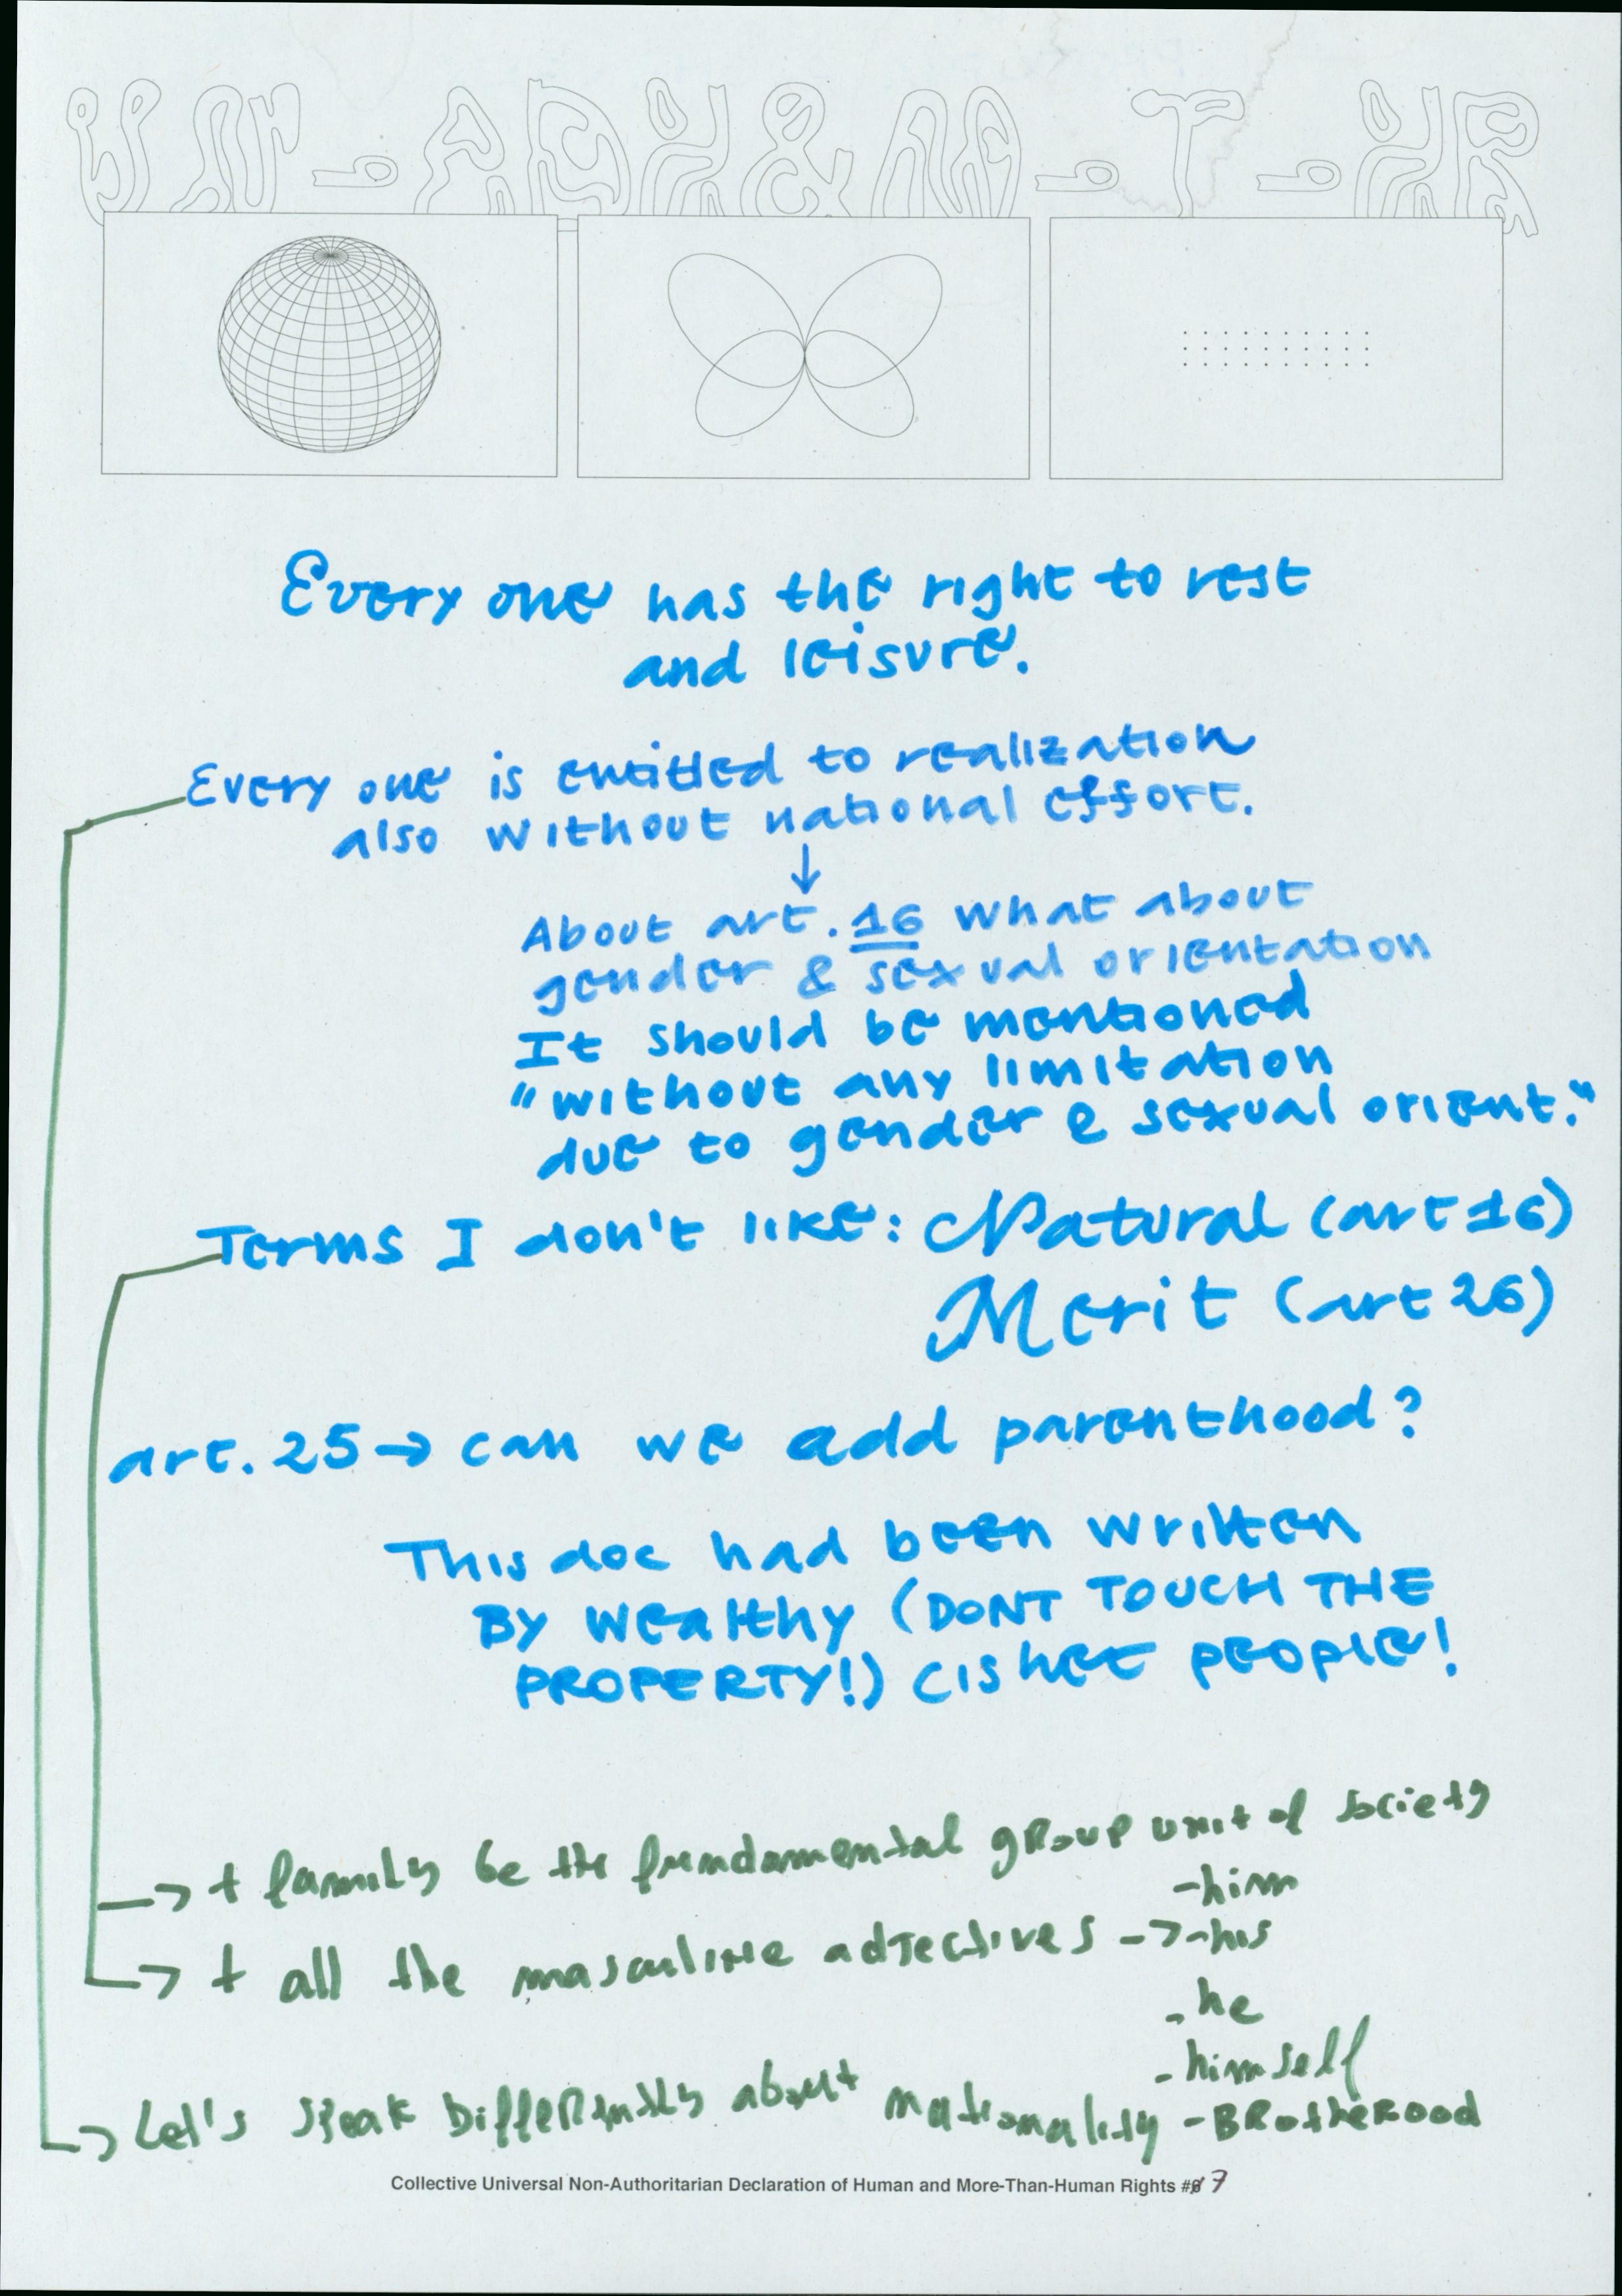 UN-ADH&M-T-HR
Every one has the right to rest
and leisure.
Every one is entitled to realization
also without national effort.
↓
About art. 16 what about
gender & sexual orientation
It should be mentioned
"without any limitation
due to gender & sexual orient."
Terms I don't like: Natural (art 16)
Merit (art 26)
art. 25 → can we add parenthood?
This doc had been written
By wealthy (DONT TOUCH THE
PROPERTY!) CIS HET PEOPLE!
→ + family be the fundamental group unit of society
-him
→ + all the masculine adjectives -> -his
- he
- himself
→ Let's speak Differently about nationality - BRotheRood
Collective Universal Non-Authoritarian Declaration of Human and More-Than-Human Rights #7